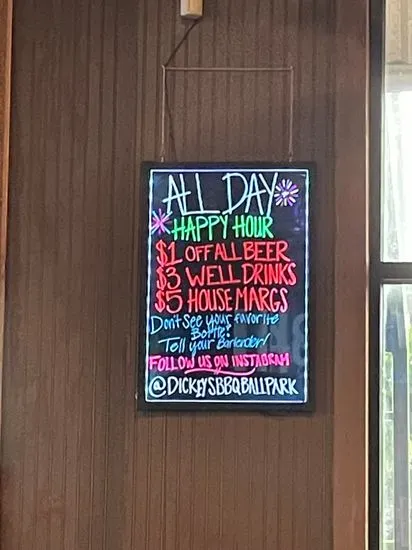 ALL DAY
HAPPY HOUR
$1 OFF ALL BEER
$3 WELL DRINKS
$5 HOUSE MARGS
Don't See your favorite
Bottle?
Tell your Bartender!
FOLLOW US ON INSTAGRAM
@DICKEYSBBQBALLPARK